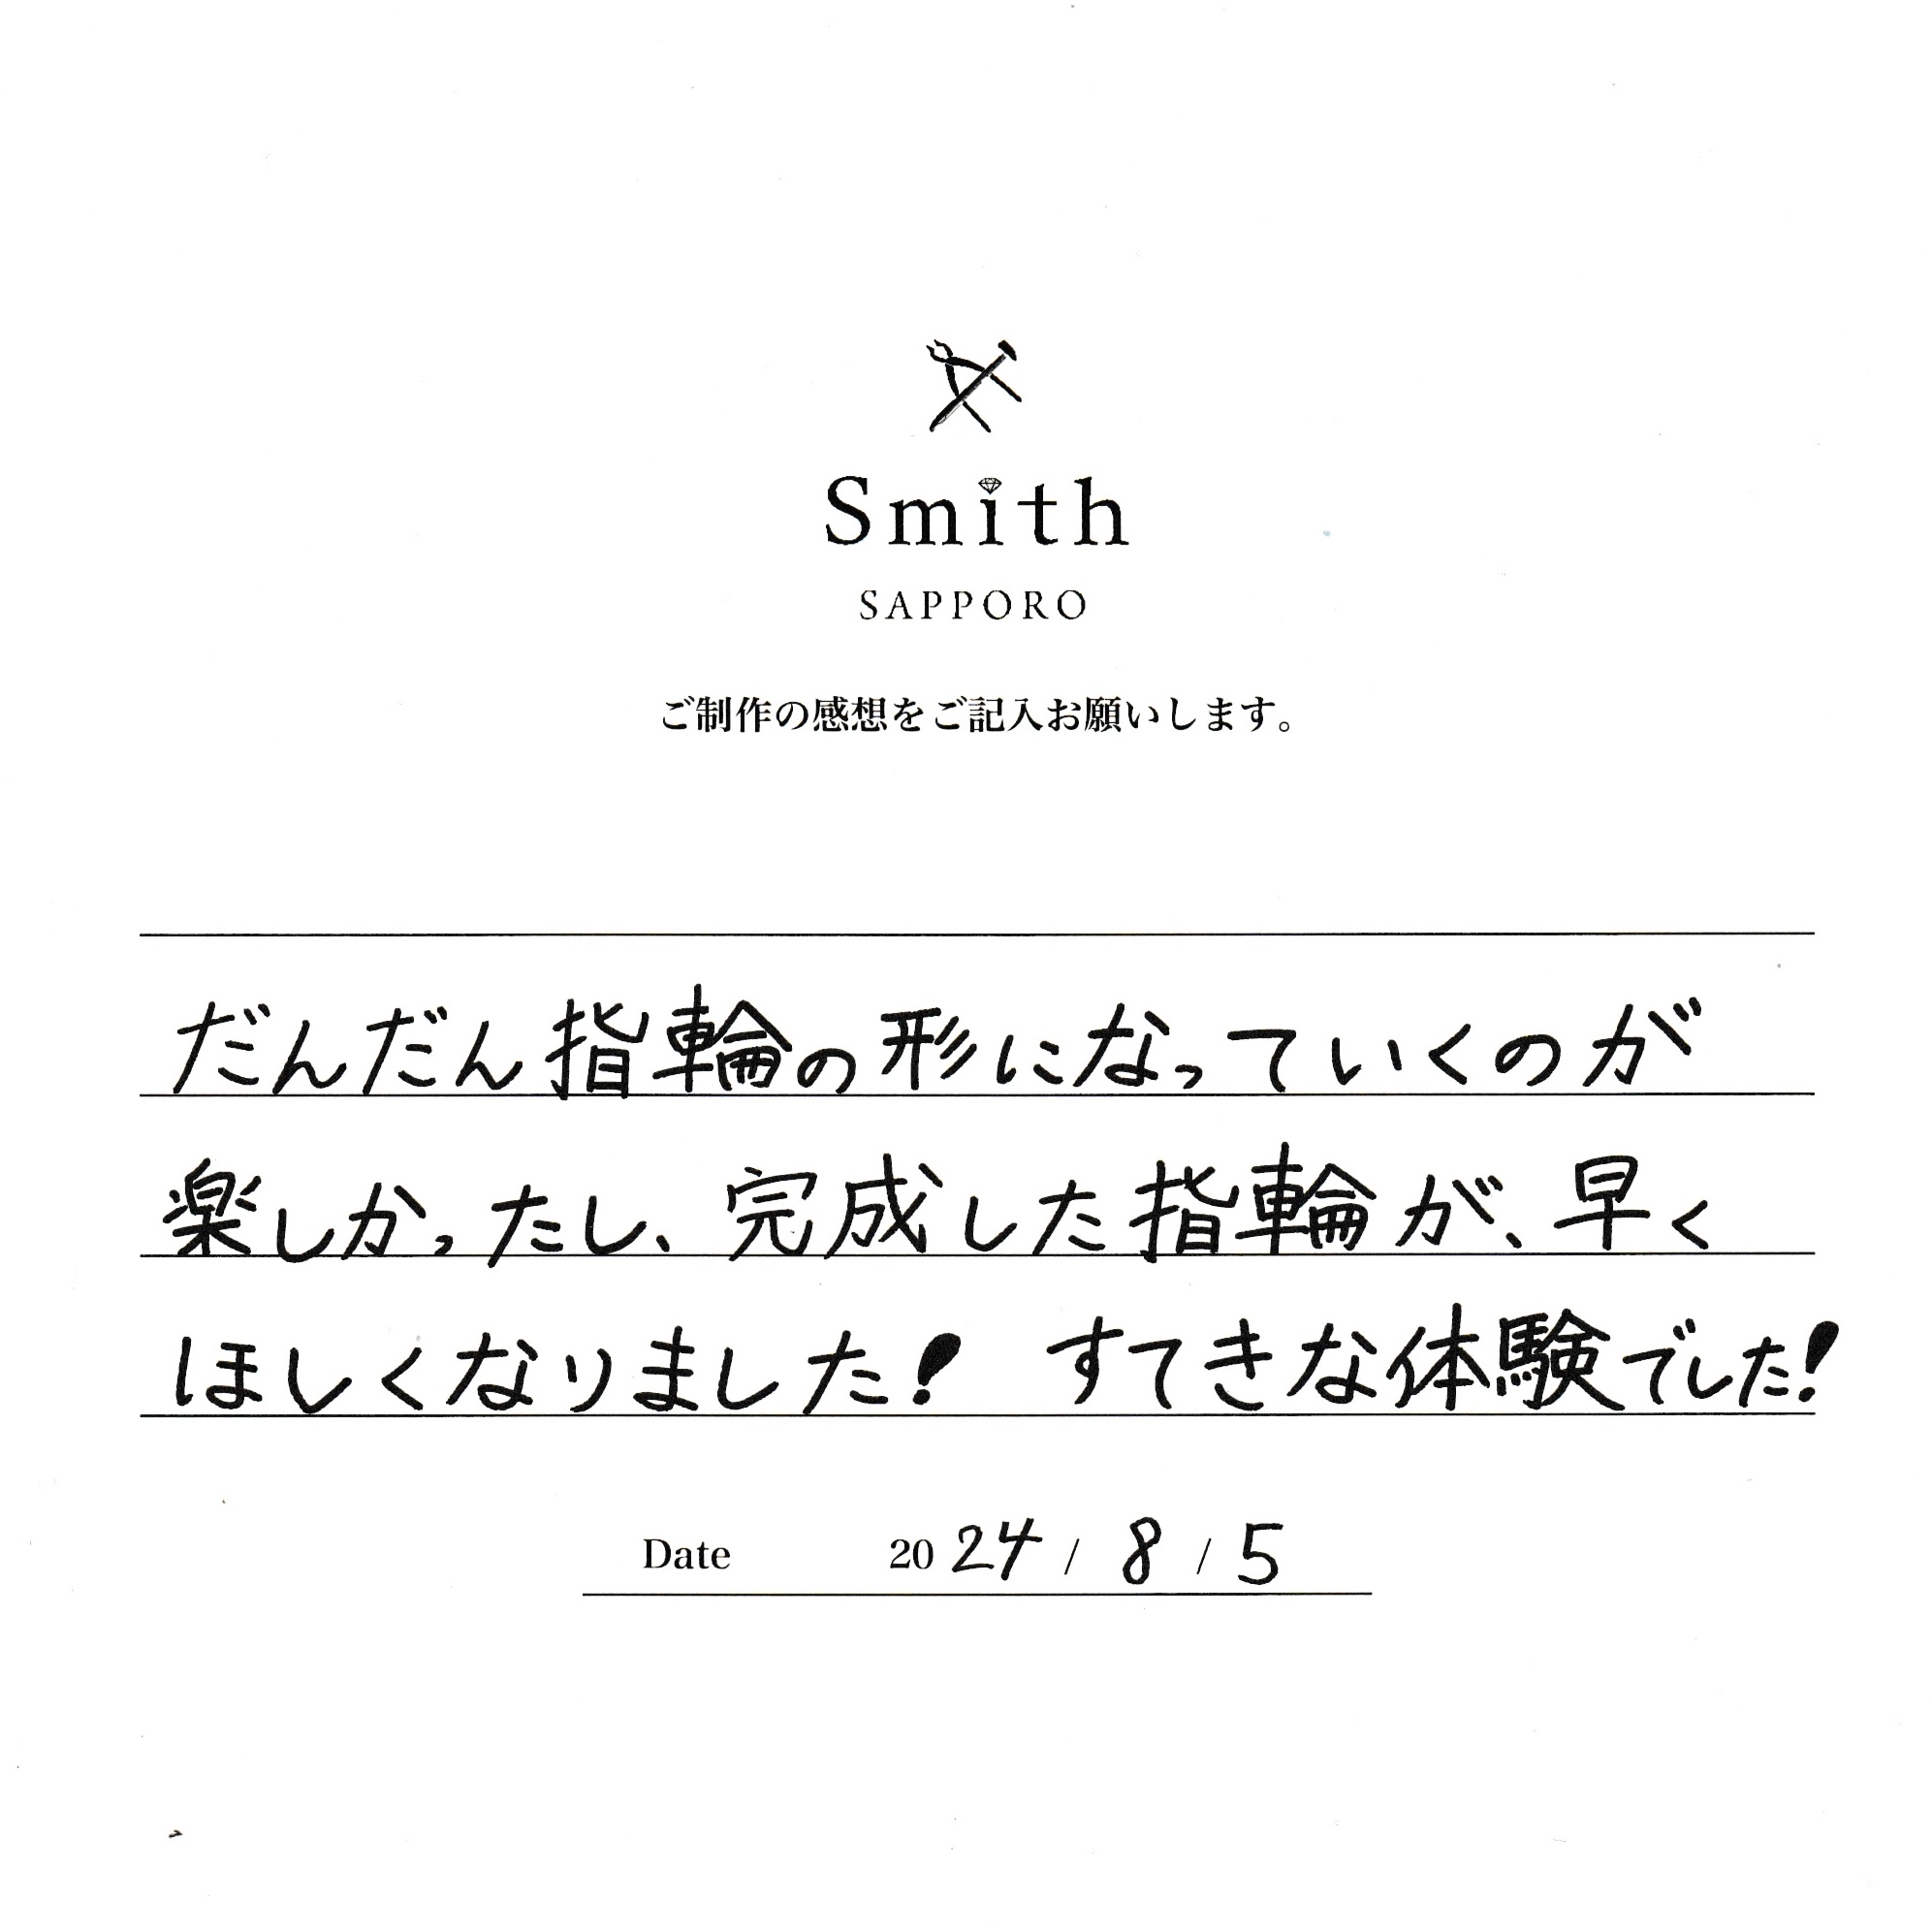 Smith
SAPPORO
ご制作の感想をご記入お願いします。
だんだん指輪の形になっていくのが
楽しかったし、完成した指輪が、早く
ほしくなりました! すてきな体験でした!
Date 2024 / 8 / 5